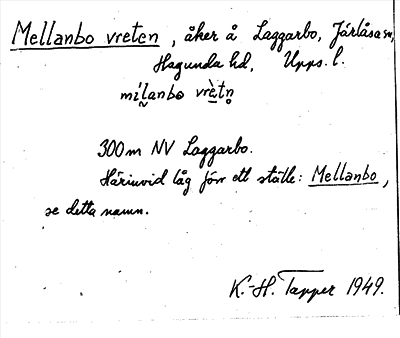 Mellanbo vreten, åker å Laggarbo, Järlåsa sn,
Hagunda hd, Upps. l.
milanbo vrètn̥
300 m NV Laggarbo.
Härinvid låg förr ett ställe: Mellanbo,
se detta namn.
K.-H. Tapper 1949.